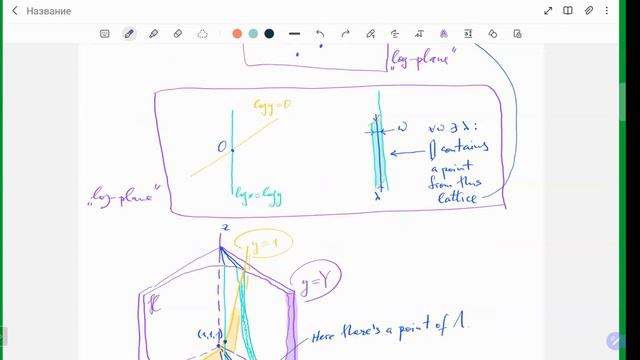 Название
"log-plane"
log y=0
O
ω
∀ω ∃ λ:
contains
a point
from this
lattice
λ
log x=log y
"log-plane"
z
y=1
y=Y
ℋ
(1,1,1)
Here there's a point of Λ.